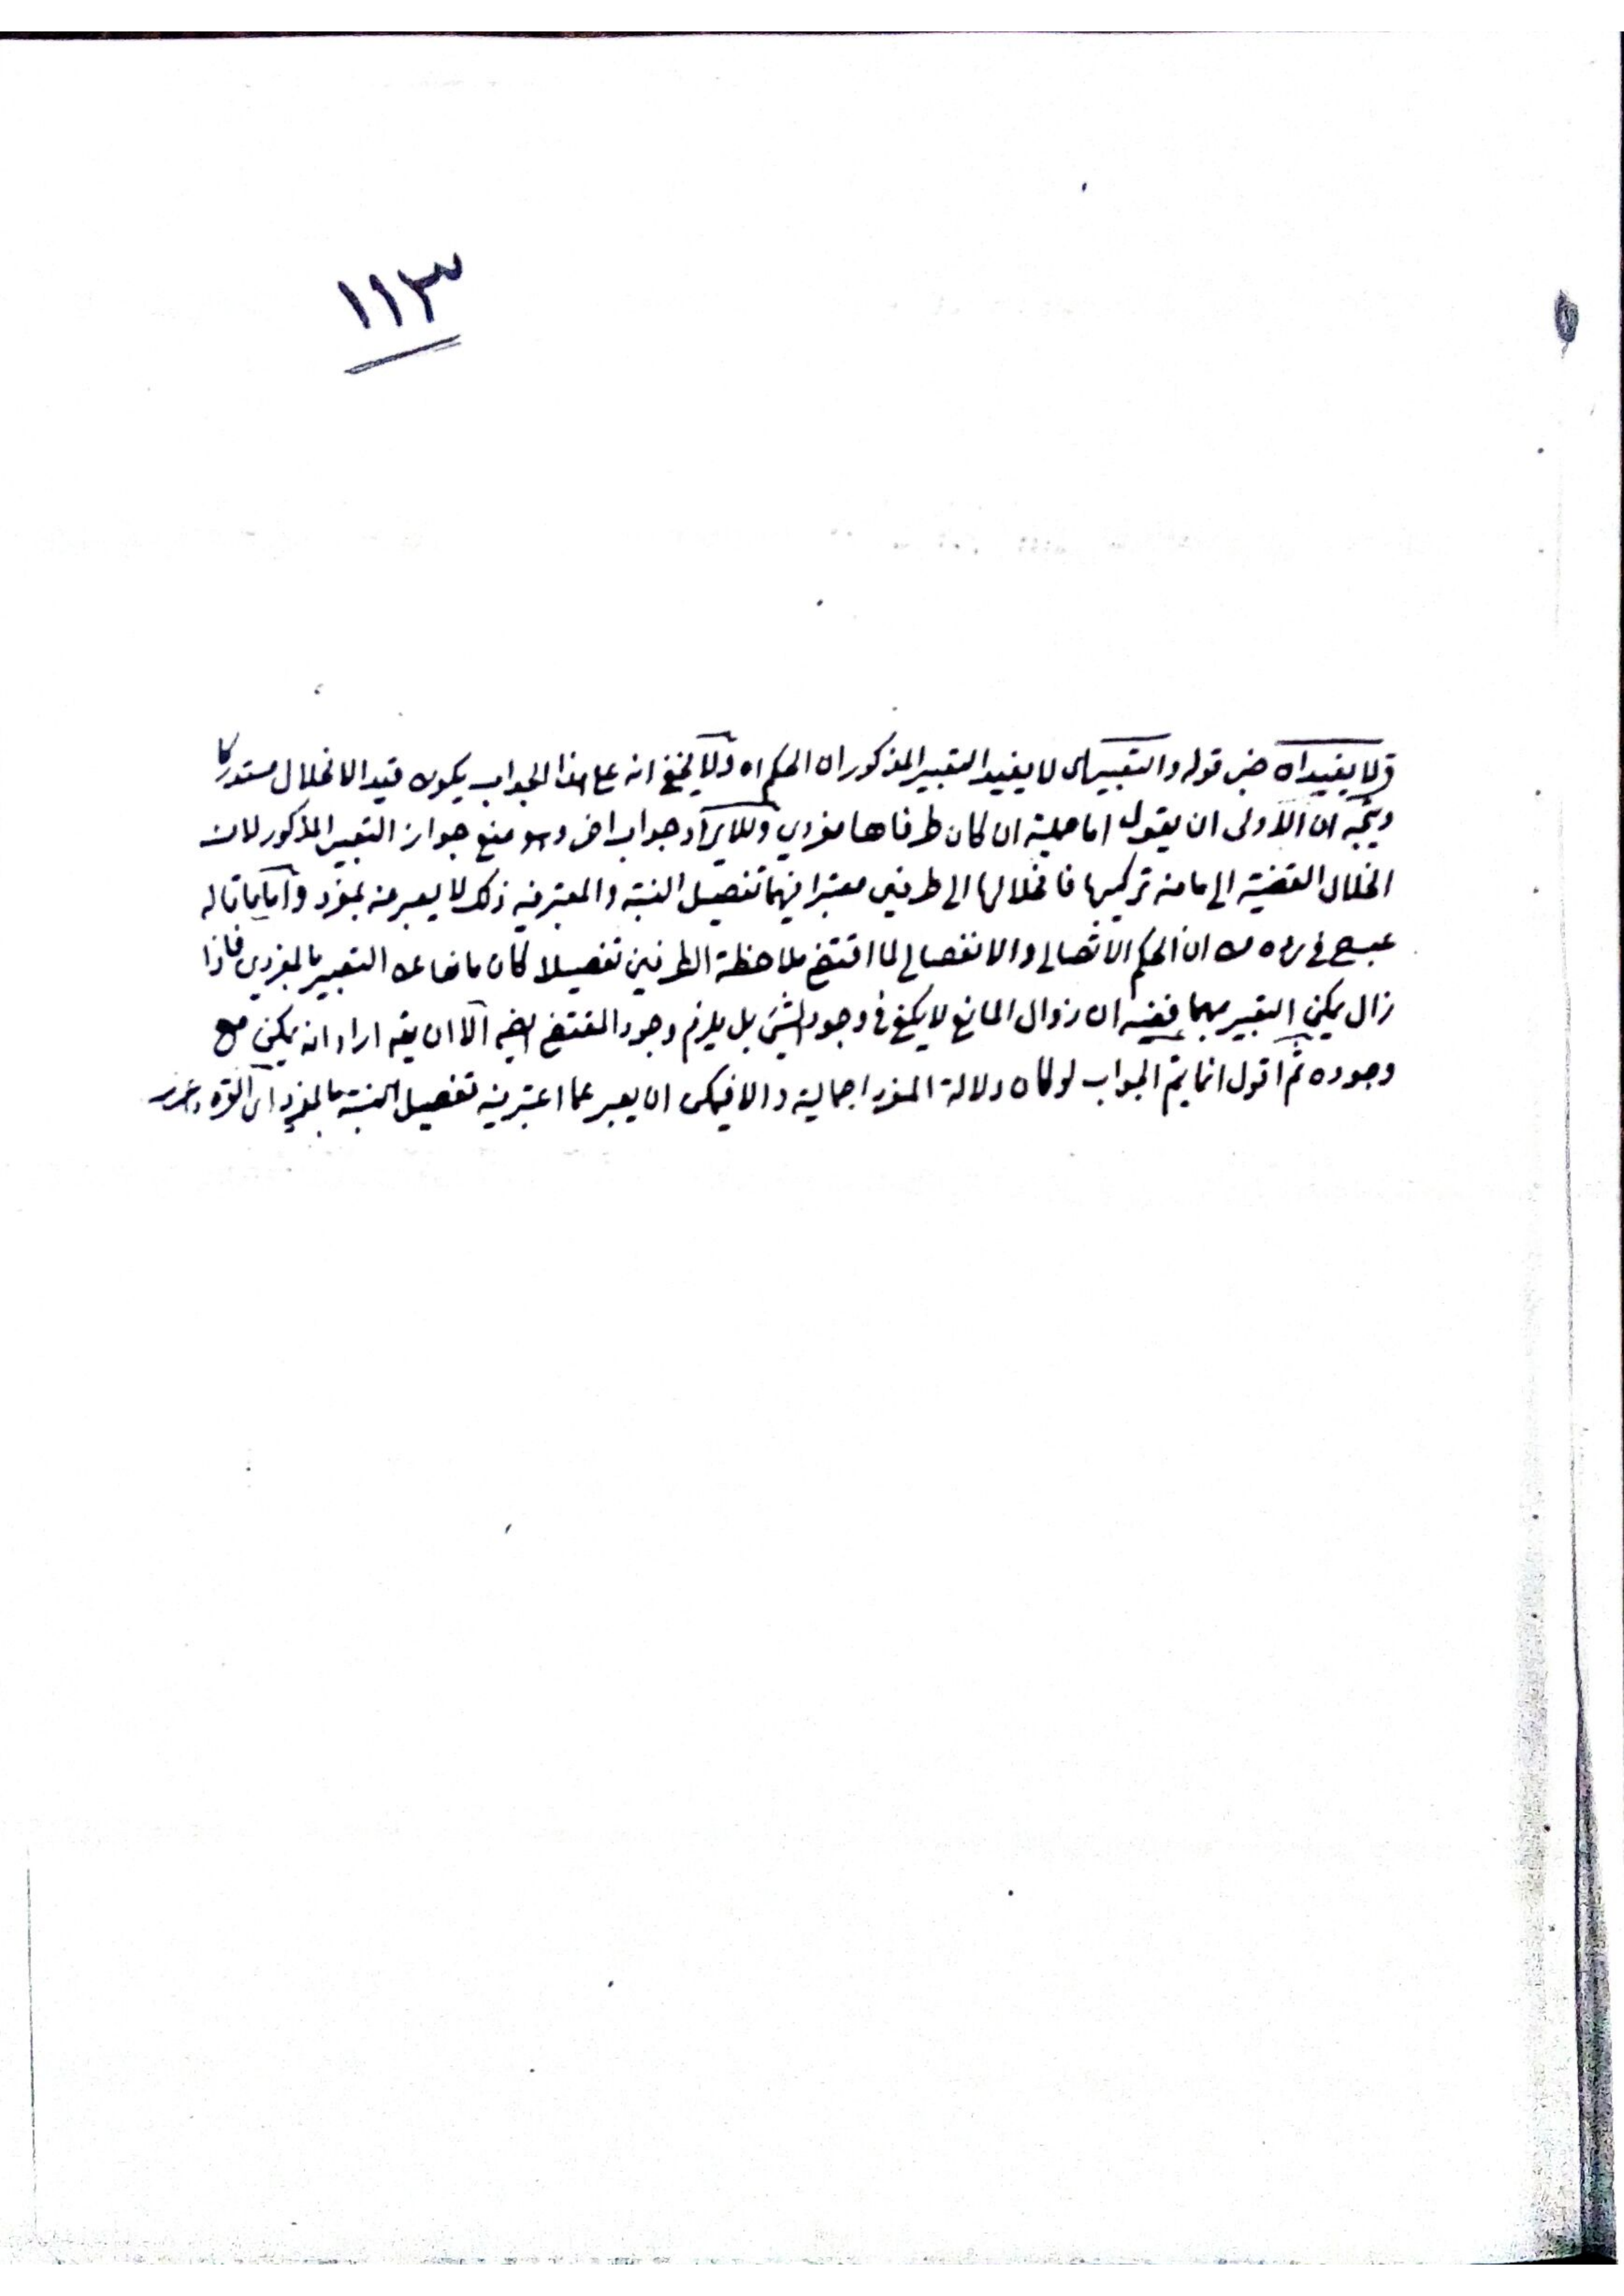 ١١٣
ق لا يفيد اه خبر قوله والتعبير اى لا يفيد التعبير المذكور ان الحكم اه ولا يخفى انه على هذا الجواب يكون قيد الانحلال مستدركا
ويتجه ان الاولى ان يقول اما حملية ان كان طرفاها مفردين وللايراد جواب اخر وهو منع جواز التعبير المذكور لان
انحلال القضية الى ما منه تركيبها فانحلالها الى طرفين معتبرا فيهما تفصيل النسبة والمعتبر فيه ذلك لا يعبر عنه بمفرد واما ما قاله
فى رده من ان الحكم الاتصالى والانفصالى لما اقتضى ملاحظة الطرفين تفصيلا كان مانعا عن التعبير بالمفردين فاذا
زال يمكن التعبير بهما ففيه ان زوال المانع لا يكفى فى وجود الشئ بل يلزم وجود المقتضى الا ان يقه اراد انه يمكن مع
وجوده ثم اقول انما يتم الجواب لو كان دلالة المفرد اجمالية والا فيمكن ان يعبر عما اعتبر فيه تفصيل النسبة بالمفرد